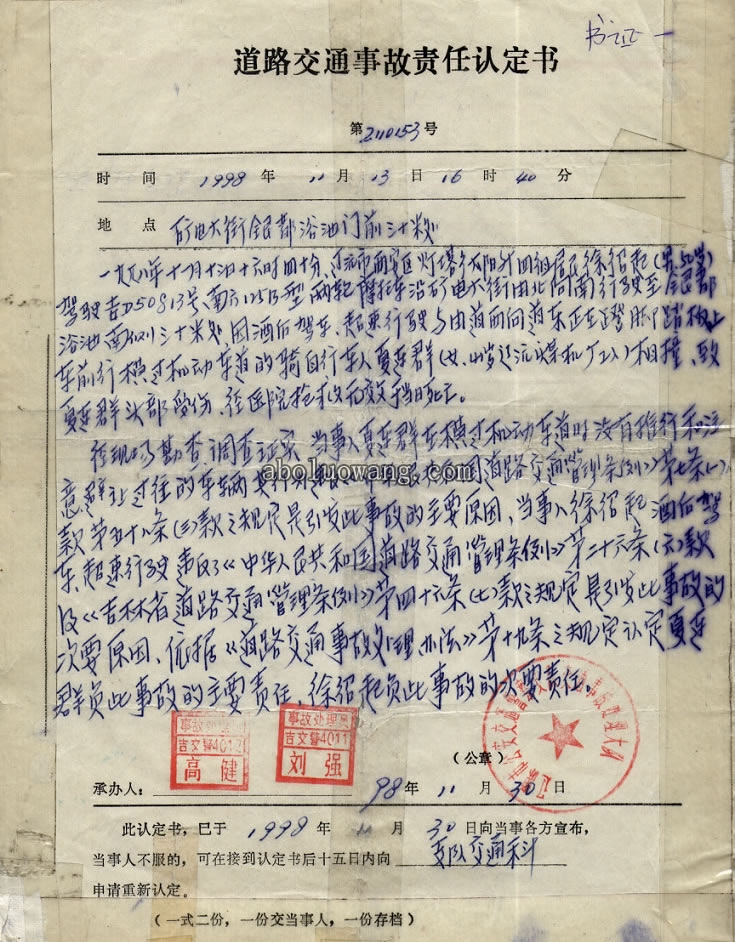 书证一
道路交通事故责任认定书
第2110153号
时 间 1998 年 11 月 13 日 16 时 40 分
地 点 矿电大街银都浴池门前三十米处
一九九八年十一月十三日十六时四十分,辽源市西安区灯塔乡太阳升四组居民徐绍起(男
驾驶吉D50813号南方125B型两轮摩托车沿矿电大街由北向南行驶至银都
浴池南侧三十米处,因酒后驾车、超速行驶与由道西向道东正在
车前行横过机动车道的骑自行车人夏连群(女、 岁辽源煤机厂工人)相撞、致
夏连群头部受伤、经医院抢救无效当日死亡。
经现场勘查调查证实,当事人夏连群在横过机动车道时没有推行和注
意避让过往的车辆 国道路交通管理条例》第七条(一)
款第五十八条(三)款之规定是引发此事故的主要原因,当事人徐绍起酒后驾
车、超速行驶违反了《中华人民共和国道路交通管理条例》第二十六条(六)款
及《吉林省道路交通管理条例》第四十六条(七)款之规定是引发此事故的
次要原因、依据《道路交通事故处理办法》第十九条之规定认定夏连
群负此事故的主要责任,徐绍起负此事故的次要责任。
aboluowang.com
事故处理员
吉交警4012
高健
事故处理员
吉交警4011
刘强
(公章)
承办人: 98 年 11 月 30 日
此认定书,已于 1998 年 11 月 30 日向当事各方宣布,
当事人不服的,可在接到认定书后十五日内向 支队交通科
申请重新认定。
(一式二份,一份交当事人,一份存档)